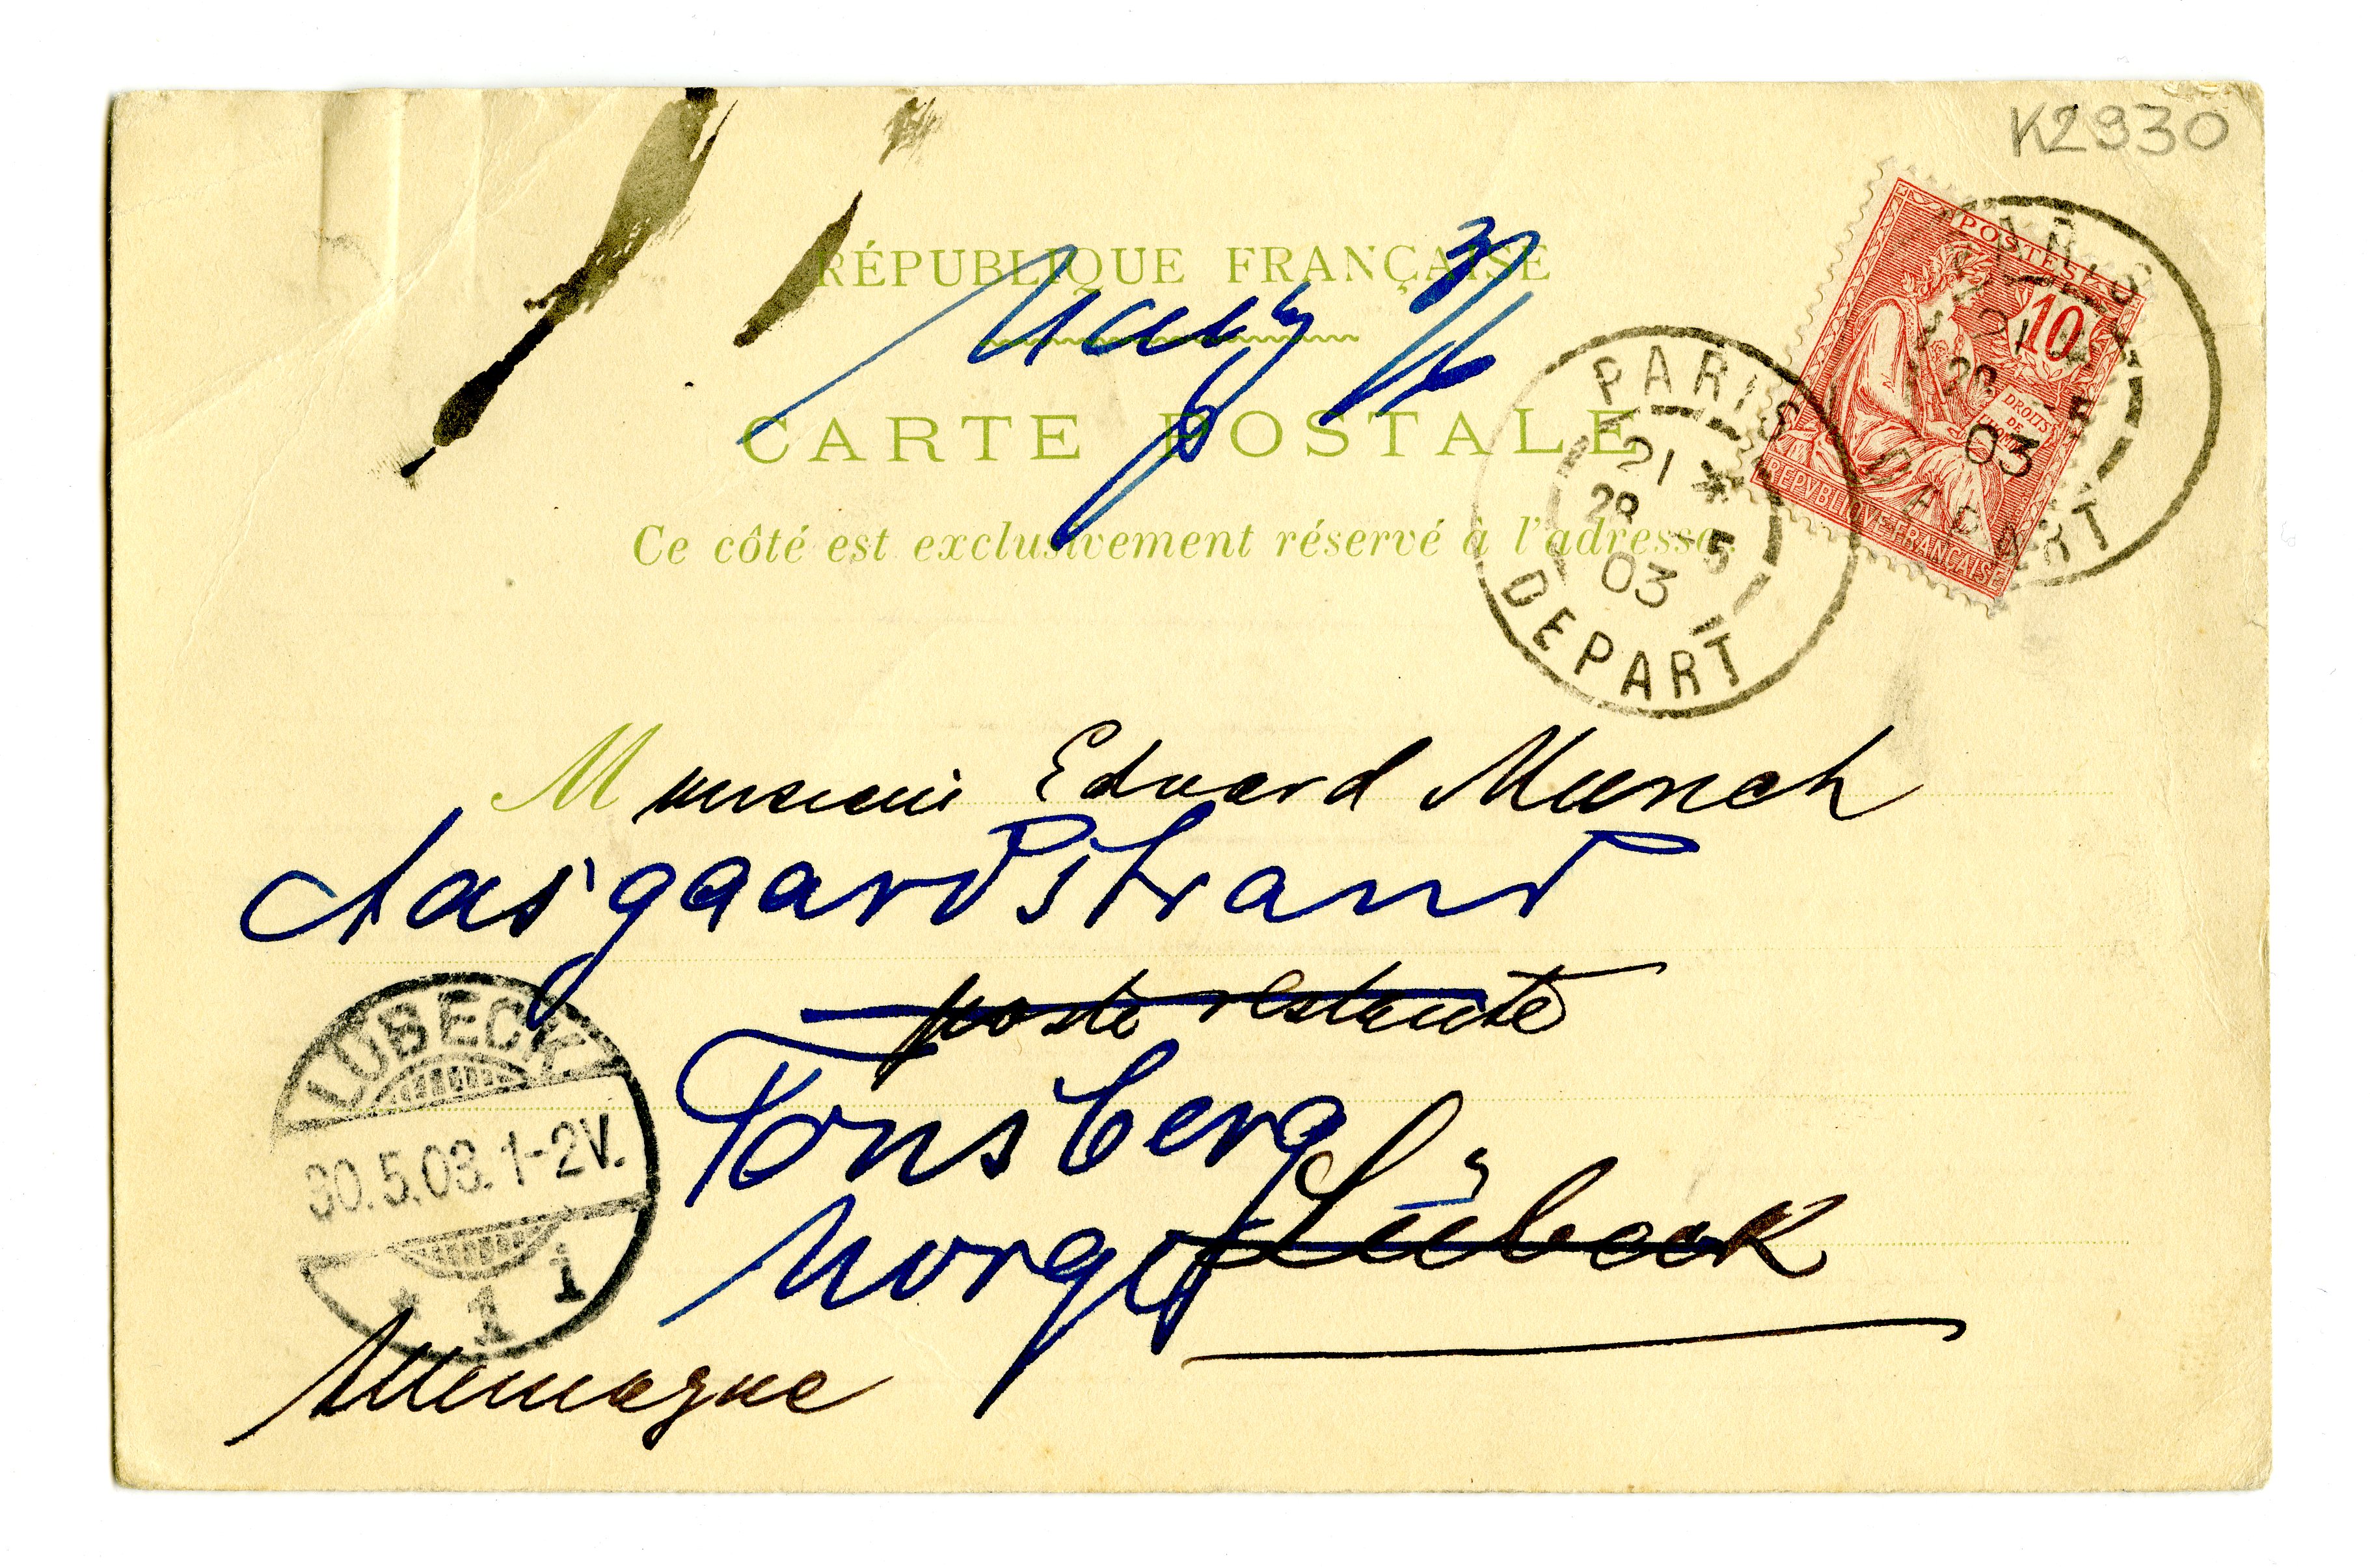 K2930
RÉPUBLIQUE FRANÇAISE
CARTE POSTALE
Ce côté est exclusivement réservé à l'adresse.
POSTES
10
DROITS
DE
REPVBLIQVE FRANÇAISE
PARIS
21
5
03
DEPART
PARIS *
21
5
03
DEPART
M Edvard Munch
Aasgaardstrand
poste restante
Tonsberg
Norge
Lübeck
LÜBECK
30.5.03.1-2V.
* 1 1
Allemagne